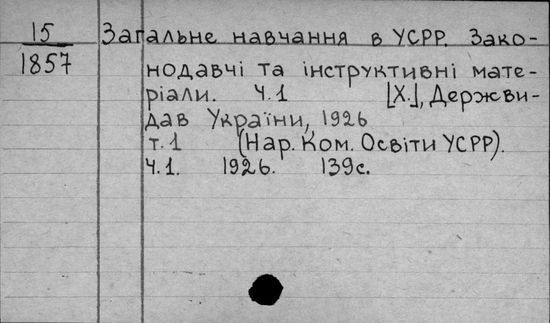 15 Загальне навчання в УСРР. Зако-
1857 нодавчі та інструктивні мате-
ріали. Ч.1 [Х.], Держви-
дав України, 1926
т.1 (Нар. Ком. Освіти УСРР).
Ч.1. 1926. 139с.